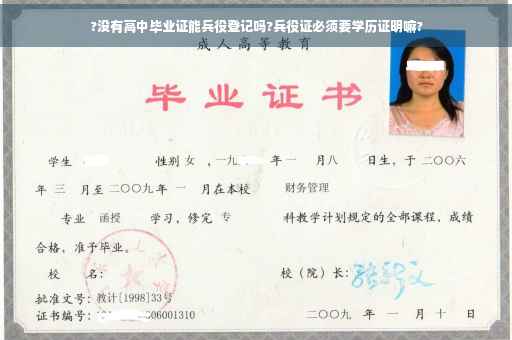 ?没有高中毕业证能兵役登记吗?兵役证必须要学历证明嘛?
成人高等教育
毕业证书
学生 性别 女 ，一九 年 一 月八 日生，于 二〇〇六
年 三 月至 二〇〇九 年 一 月在本校 财务管理
专业 函授 学习，修完 专 科教学计划规定的全部课程，成绩
合格，准予毕业。
校 名： 校（院）长：
批准文号：教计[1998]33号
证书编号： 06001310 二〇〇九 年 一 月 十 日